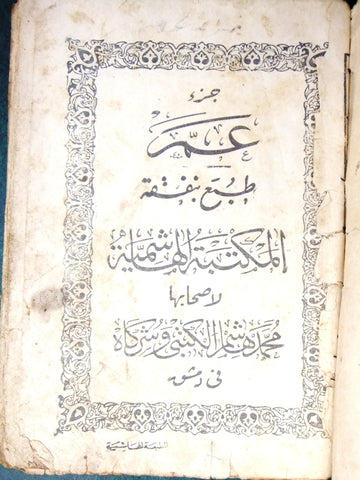 جزء
عمّ
طبع بنفقة
المكتبة الهاشمية
لاصحابها
محمد هاشم الكتبي وشركاه
في دمشق
المطبعة الهاشمية